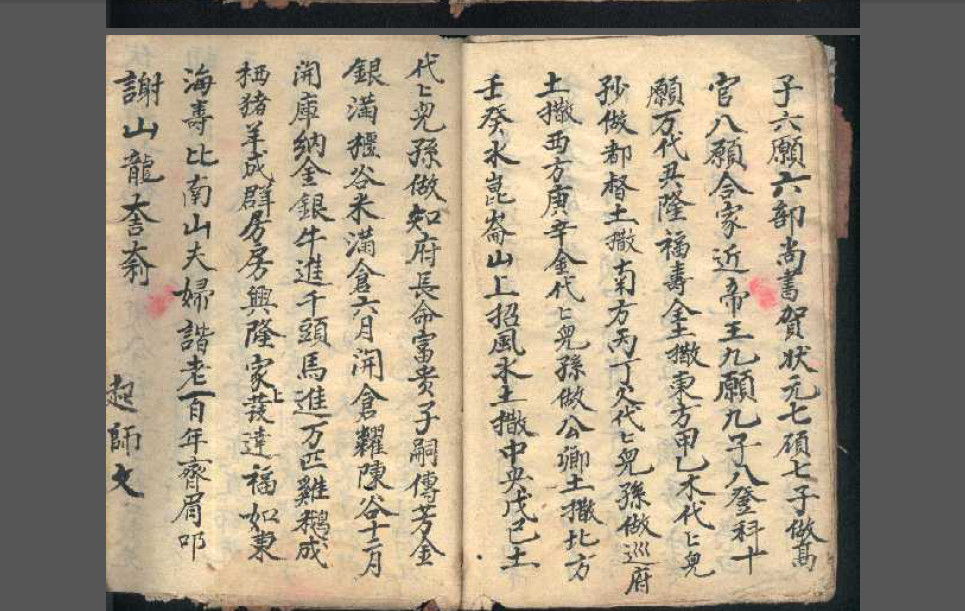 子六願六部尚書賀狀元七願七子做高
官八願合家近帝王九願九子八登科十
願万代共隆福壽全土撒東方甲乙木代匕兒
孫做巡府
抄做都督土撒南方丙丁火代匕兒
土撒西方庚辛金代匕兒孫做公卿土撒北方
壬癸水崑崙山上招風水土撒中央戊己土
代匕兒孫做知府長命富貴子嗣傳芳金
銀滿櫃谷米滿倉六月開倉糶陳谷十二月
開庫納金銀牛進千頭馬進万匹雞鵝成
栖猪羊成群房房興隆家上發達福如東
海壽比南山夫婦諧老一百年齊眉叩
謝山龍
起師文